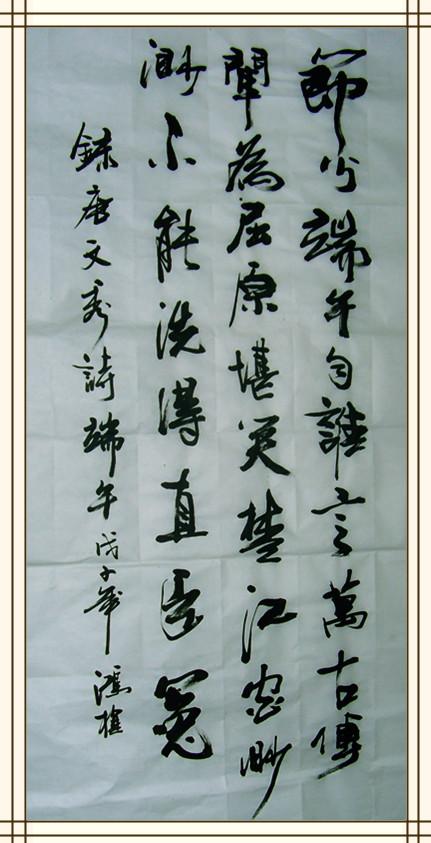 節分端午自誰言萬古傳
聞為屈原堪笑楚江空渺
渺不能洗得直臣冤
錄唐文秀詩端午戊子年鴻